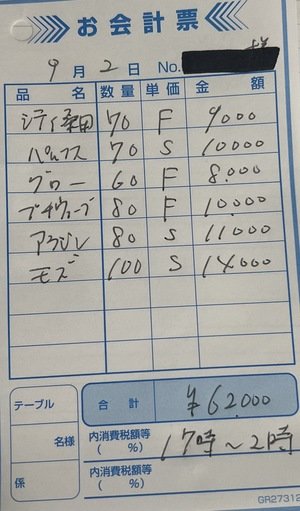 お会計票
9月2日 No. 様
品名 数量 単価 金額
シティ桑田 70 F 9000
パルファス 70 S 10000
グロー 60 F 8.000
プチウェーブ 80 F 10.000
アラジン 80 S 11000
モズ 100 S 14000
テーブル 合計 ¥62.000
名様 内消費税額等 ( %) 17時~21時
係 内消費税額等 ( %)
GR27312